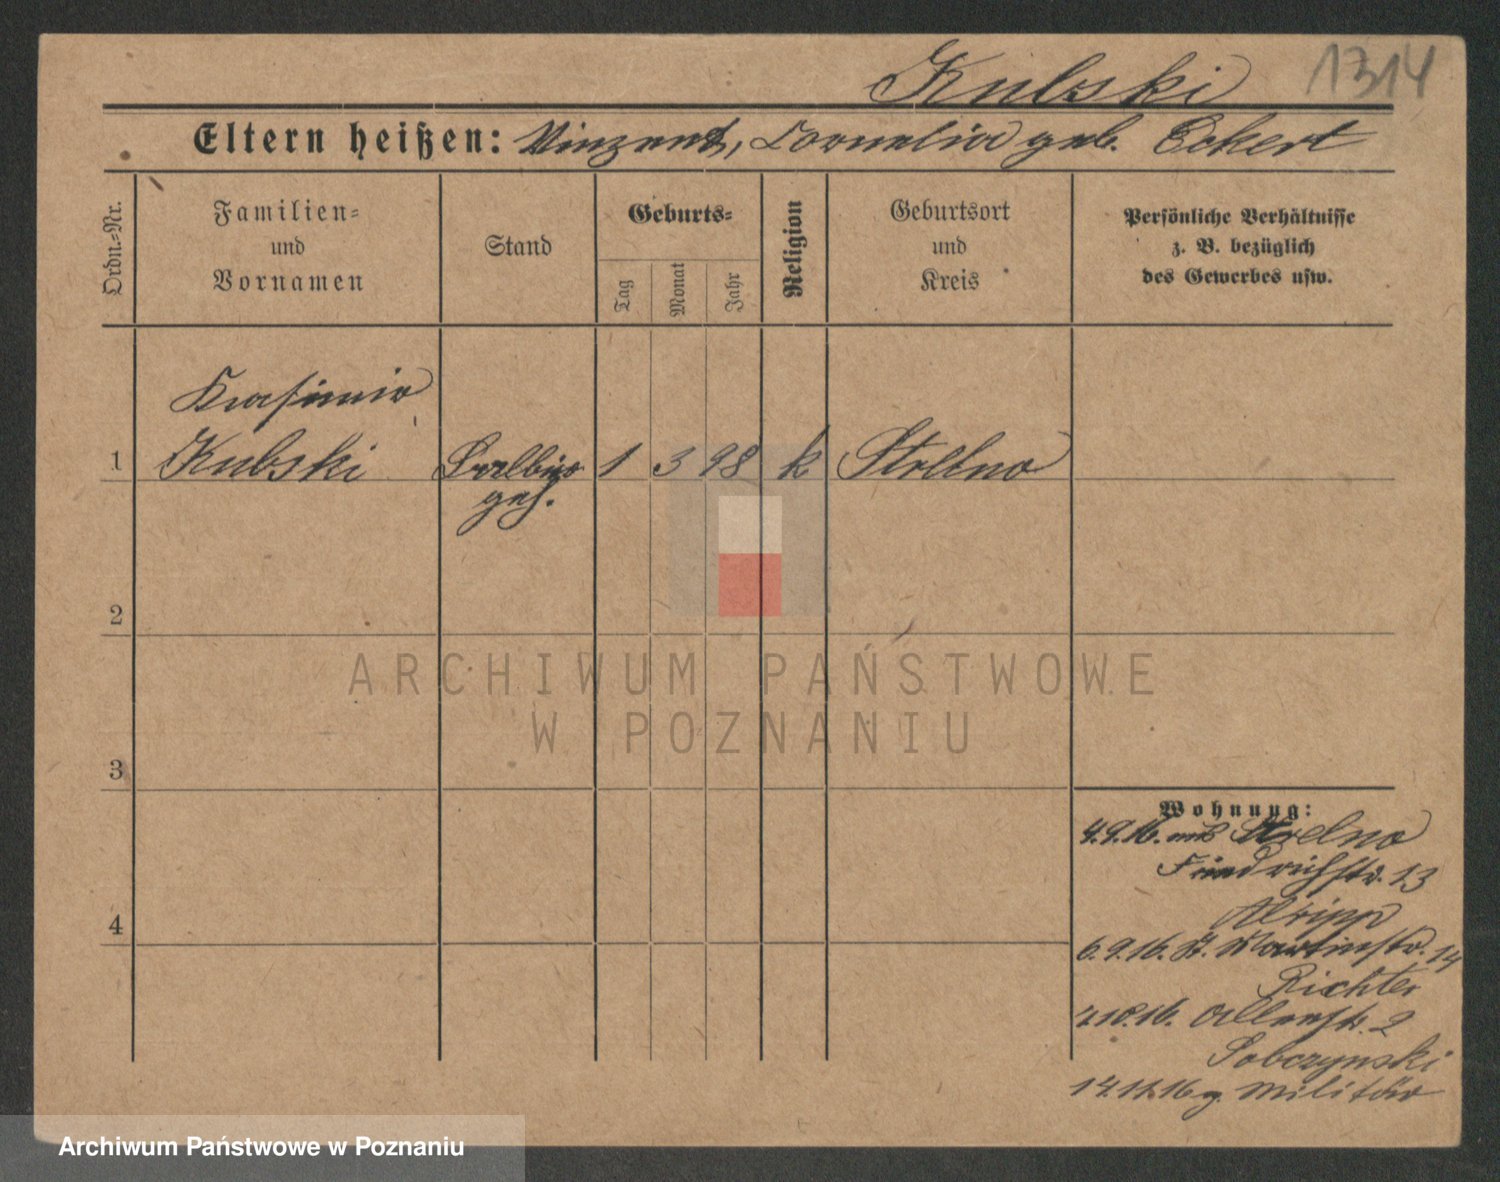 1314
Kubski
Eltern heißen: Vinzent, Cornelia geb. Eckert
Ordn.-Nr.
Familien- und Vornamen
Stand
Geburts-
Tag
Monat
Jahr
Religion
Geburtsort und Kreis
Persönliche Verhältnisse
z. B. bezüglich
des Gewerbes usw.
Kasimir
1 Kubski Barbier 1 3 98 k Strelno
geh.
2
3
4
Wohnung:
4.9.16. aus Strelno
Friedrichstr. 13
6.9.16. St. Martinstr. 14
Richter
16. 2
Sobczynski
14.11.16 z. Militär
ARCHIWUM PAŃSTWOWE
W POZNANIU
Archiwum Państwowe w Poznaniu